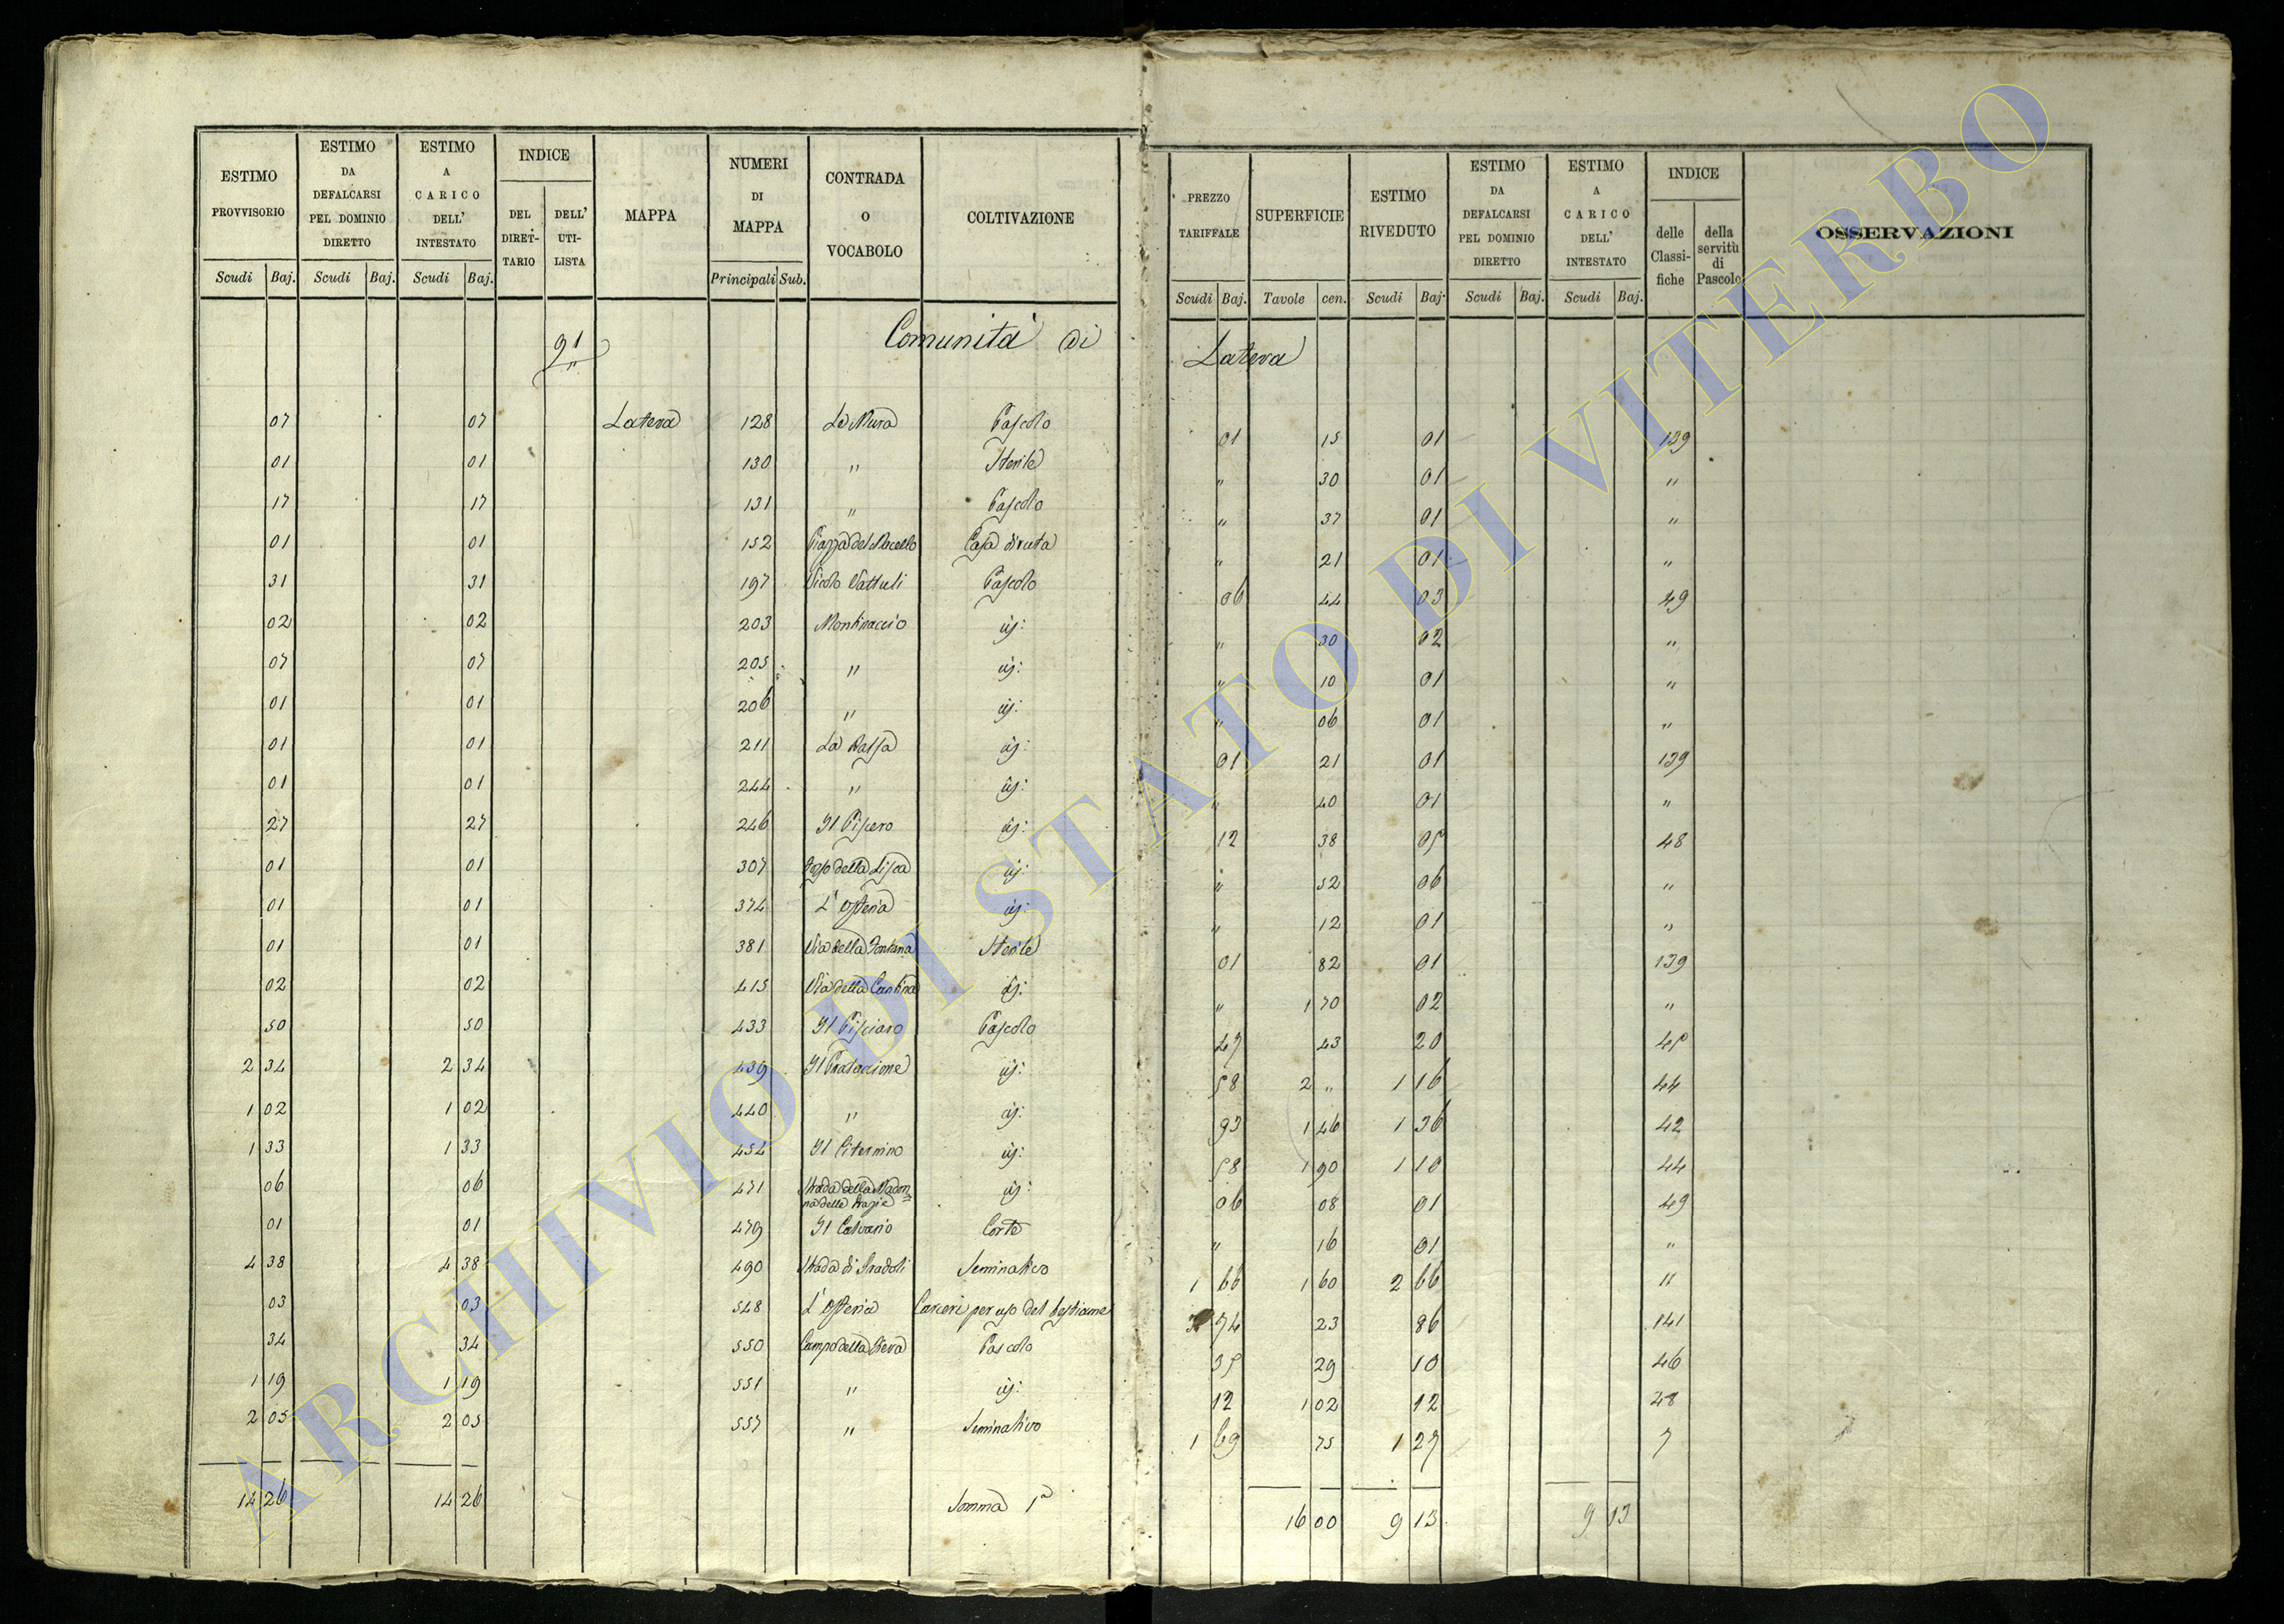 ESTIMO PROVVISORIO Scudi Baj. | ESTIMO DA DEFALCARSI PEL DOMINIO DIRETTO Scudi Baj. | ESTIMO A CARICO DELL' INTESTATO Scudi Baj. | INDICE DEL DIRETTARIO | DELL' UTILISTA | MAPPA | NUMERI DI MAPPA Principali Sub. | CONTRADA O VOCABOLO | COLTIVAZIONE | PREZZO TARIFFALE Scudi Baj. | SUPERFICIE Tavole cen. | ESTIMO RIVEDUTO Scudi Baj. | ESTIMO DA DEFALCARSI PEL DOMINIO DIRETTO Scudi Baj. | ESTIMO A CARICO DELL' INTESTATO Scudi Baj. | INDICE delle Classifiche | della servitù di Pascolo | OSSERVAZIONI
91 Comunità di Latera
07 07 Latera 128 Le Mura Pascolo 01 15 01 139
01 01 130 " Sterile " 30 01 "
17 17 131 " Pascolo " 37 01 "
01 01 152 Piazza del Macello Casa diruta " 21 01 "
31 31 197 Vicolo Vattuli Pascolo 06 44 03 49
02 02 203 Montinaccio id: " 30 02 "
07 07 205 " id: " 10 01 "
01 01 206 " id: " 06 01 "
01 01 211 La id: 01 21 01 139
01 01 244 " id: " 40 01 "
27 27 246 Il Piscero id: 12 38 05 48
01 01 307 della Lisca id: " 52 06 "
01 01 374 L'Osteria id: " 12 01 "
01 01 381 Via della Fontana Sterile 01 82 01 139
02 02 415 Via della Cantina id: " 1 70 02 "
50 50 433 Il Pisciaro Pascolo 47 43 20 45
2 34 2 34 439 Il Pratacione id: 58 2 " 1 16 44
1 02 1 02 440 " id: 93 1 46 1 36 42
1 33 1 33 454 Il Citernino id: 58 1 90 1 10 44
06 06 471 Strada della Madonna delle Grazie id: 06 08 01 49
01 01 479 Il Calvario Corte " 16 01 "
4 38 4 38 490 Strada di Gradoli Seminativo 1 66 1 60 2 66 11
03 03 548 L'Osteria Carceri per uso del bestiame 3 74 23 86 141
34 34 550 Campo della Pieva Pascolo 35 29 10 46
1 19 1 19 551 " id: 12 1 02 12 48
2 05 2 05 557 " Seminativo 1 69 75 1 27 7
14 26 14 26 Somma 1a 16 00 9 13 9 13
ARCHIVIO DI STATO DI VITERBO